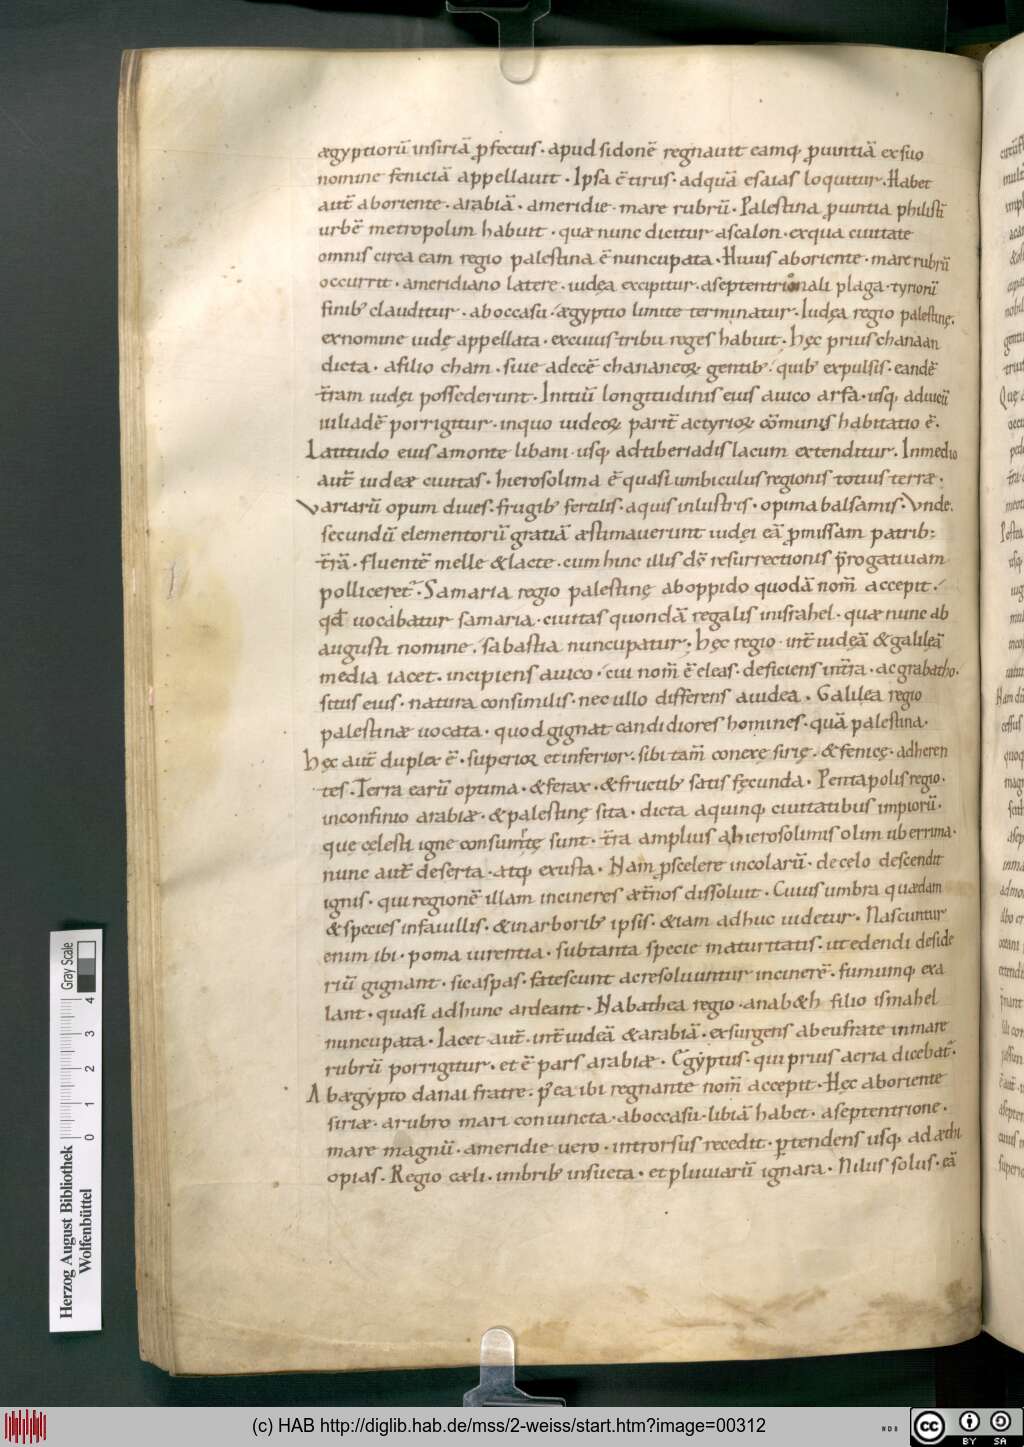 ægyptiorū insiriā ꝓfectus · apud sidonē regnauit eamq; ꝓuintiā ex suo
nomine feniciā appellauit · Ipsa ē tirus · ad quā esaias loquitur · Habet
aut̄ ab oriente · arabiā · a meridie · mare rubrū · Palestina ꝓuintia philisti
urbē metropolim habuit · quæ nunc dicitur ascalon · ex qua ciuitate
omnis circa eam regio palestina ē nuncupata · Huius ab oriente · mare rubrū
occurrit · a meridiano latere · iudęa excipitur · a septentrionali plaga · tyriorū
finib; clauditur · ab occasu · ægyptio limite terminatur · Iudęa regio palestinę ·
ex nomine iudę appellata · ex cuius tribu reges habuit · hęc prius chanaan
dicta · a filio cham · siue a decē chananeoꝝ gentib; · quib; expulsis · eandē
t̄ram iudęi possederunt · Initiū longitudinis eius a uico arfa · usq; ad uicū
iuliadē porrigitur · in quo iudeoꝝ parit̄ ac tyrioꝝ cōmunis habitatio ē ·
Latitudo eius a monte libani · usq; ad tiberiadis lacum extenditur · In medio
aut̄ iudeæ ciuitas · hierosolima ē quasi umbiculus regionis totius terræ ·
Variarū opum diues · frugib; fertilis · aquis inlustris · opima balsamis · Vnde ·
secundū elementorū gratiā æstimauerunt iudęi eā ꝓmissam patrib;
t̄rā · fluentē melle & lacte · cum hinc illis d̄s resurrectionis p̄rogatiuam
polliceret̄ · Samaria regio palestinę ab oppido quodā nom̄ accepit ·
qd̄ uocabatur samaria · ciuitas quondā regalis in israhel · quæ nunc ab
augusti nomine · sabastia nuncupatur · hęc regio · int̄ iudęā & galileā
media iacet · incipiens a uico · cui nom̄ ē eleas · deficiens in t̄ra · acgrabatho ·
situs eius · natura consimilis · nec ullo differens a iudea · Galilea regio
palestinæ uocata · quod gignat candidiores homines · quā palestina ·
hęc aut̄ duplex ē · superior et inferior · sibi tam̄ conexę sirię · & fenicę · adheren
tes · Terra earū optima · & ferax · & fructib; satis fęcunda · Pentapolis regio ·
in confinio arabiæ · & palestinę sita · dicta a quinq; ciuitatibus impiorū ·
que cęlesti igne consumtę sunt · t̄ra amplius ahierosolimis olim uberrima ·
nunc aut̄ deserta · atq; exusta · Nam ꝓ scelere incolarū · de celo descendit
ignis · qui regionē illam in cineres æt̄nos dissoluit · Cuius umbra quædam
& species in fauillis · & in arborib; ipsis · & iam adhuc uidetur · Nascuntur
enim ibi · poma uirentia · sub tanta specie maturitatis · ut edendi deside
riū gignant · si caspas · fatescunt ac resoluuntur in cinerē · fumumq; exa
lant · quasi adhunc ardeant · Nabathea regio · a nab&h filio ismahel
nuncupata · Iacet aut̄ · int̄ iudeā & arabiā · exsurgens ab eufrate in mare
rubrū porrigitur · et ē pars arabiæ · Egyptus · qui prius aeria dicebat̄ ·
Ab ægypto danai fratre · p̄ea ibi regnante nom̄ accepit · Hęc ab oriente
siriæ · a rubro mari coniuncta · ab occasu · libiā habet · a septentrione ·
mare magnū · a meridie uero · introrsus recedit · ꝑtendens usq; ad æthi
opias · Regio cæli · imbrib; insueta · et pluuiarū ignara · Nilus solus · eā
Herzog August Bibliothek
Wolfenbüttel
0 1 2 3 4
Gray Scale
(c) HAB http://diglib.hab.de/mss/2-weiss/start.htm?image=00312
cc BY SA